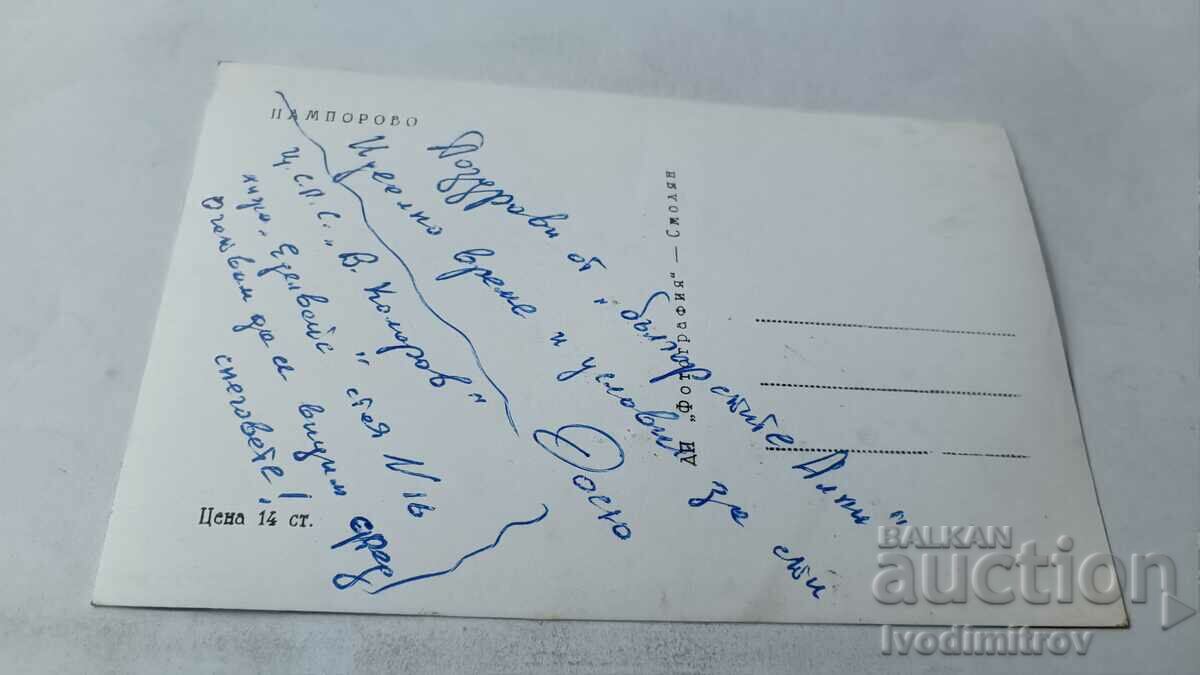 ПАМПОРОВО
Поздрави от "българските Алпи"
Идеално време и условия за ски
Досю
Ц.С.П.С. "В. Коларов"
хижа "Еделвайс" стая N 16
Очаквам да се видим сред
снеговете!
ДИ "Фотография" — Смолян
Цена 14 ст.
BALKAN
auction
Ivodimitrov